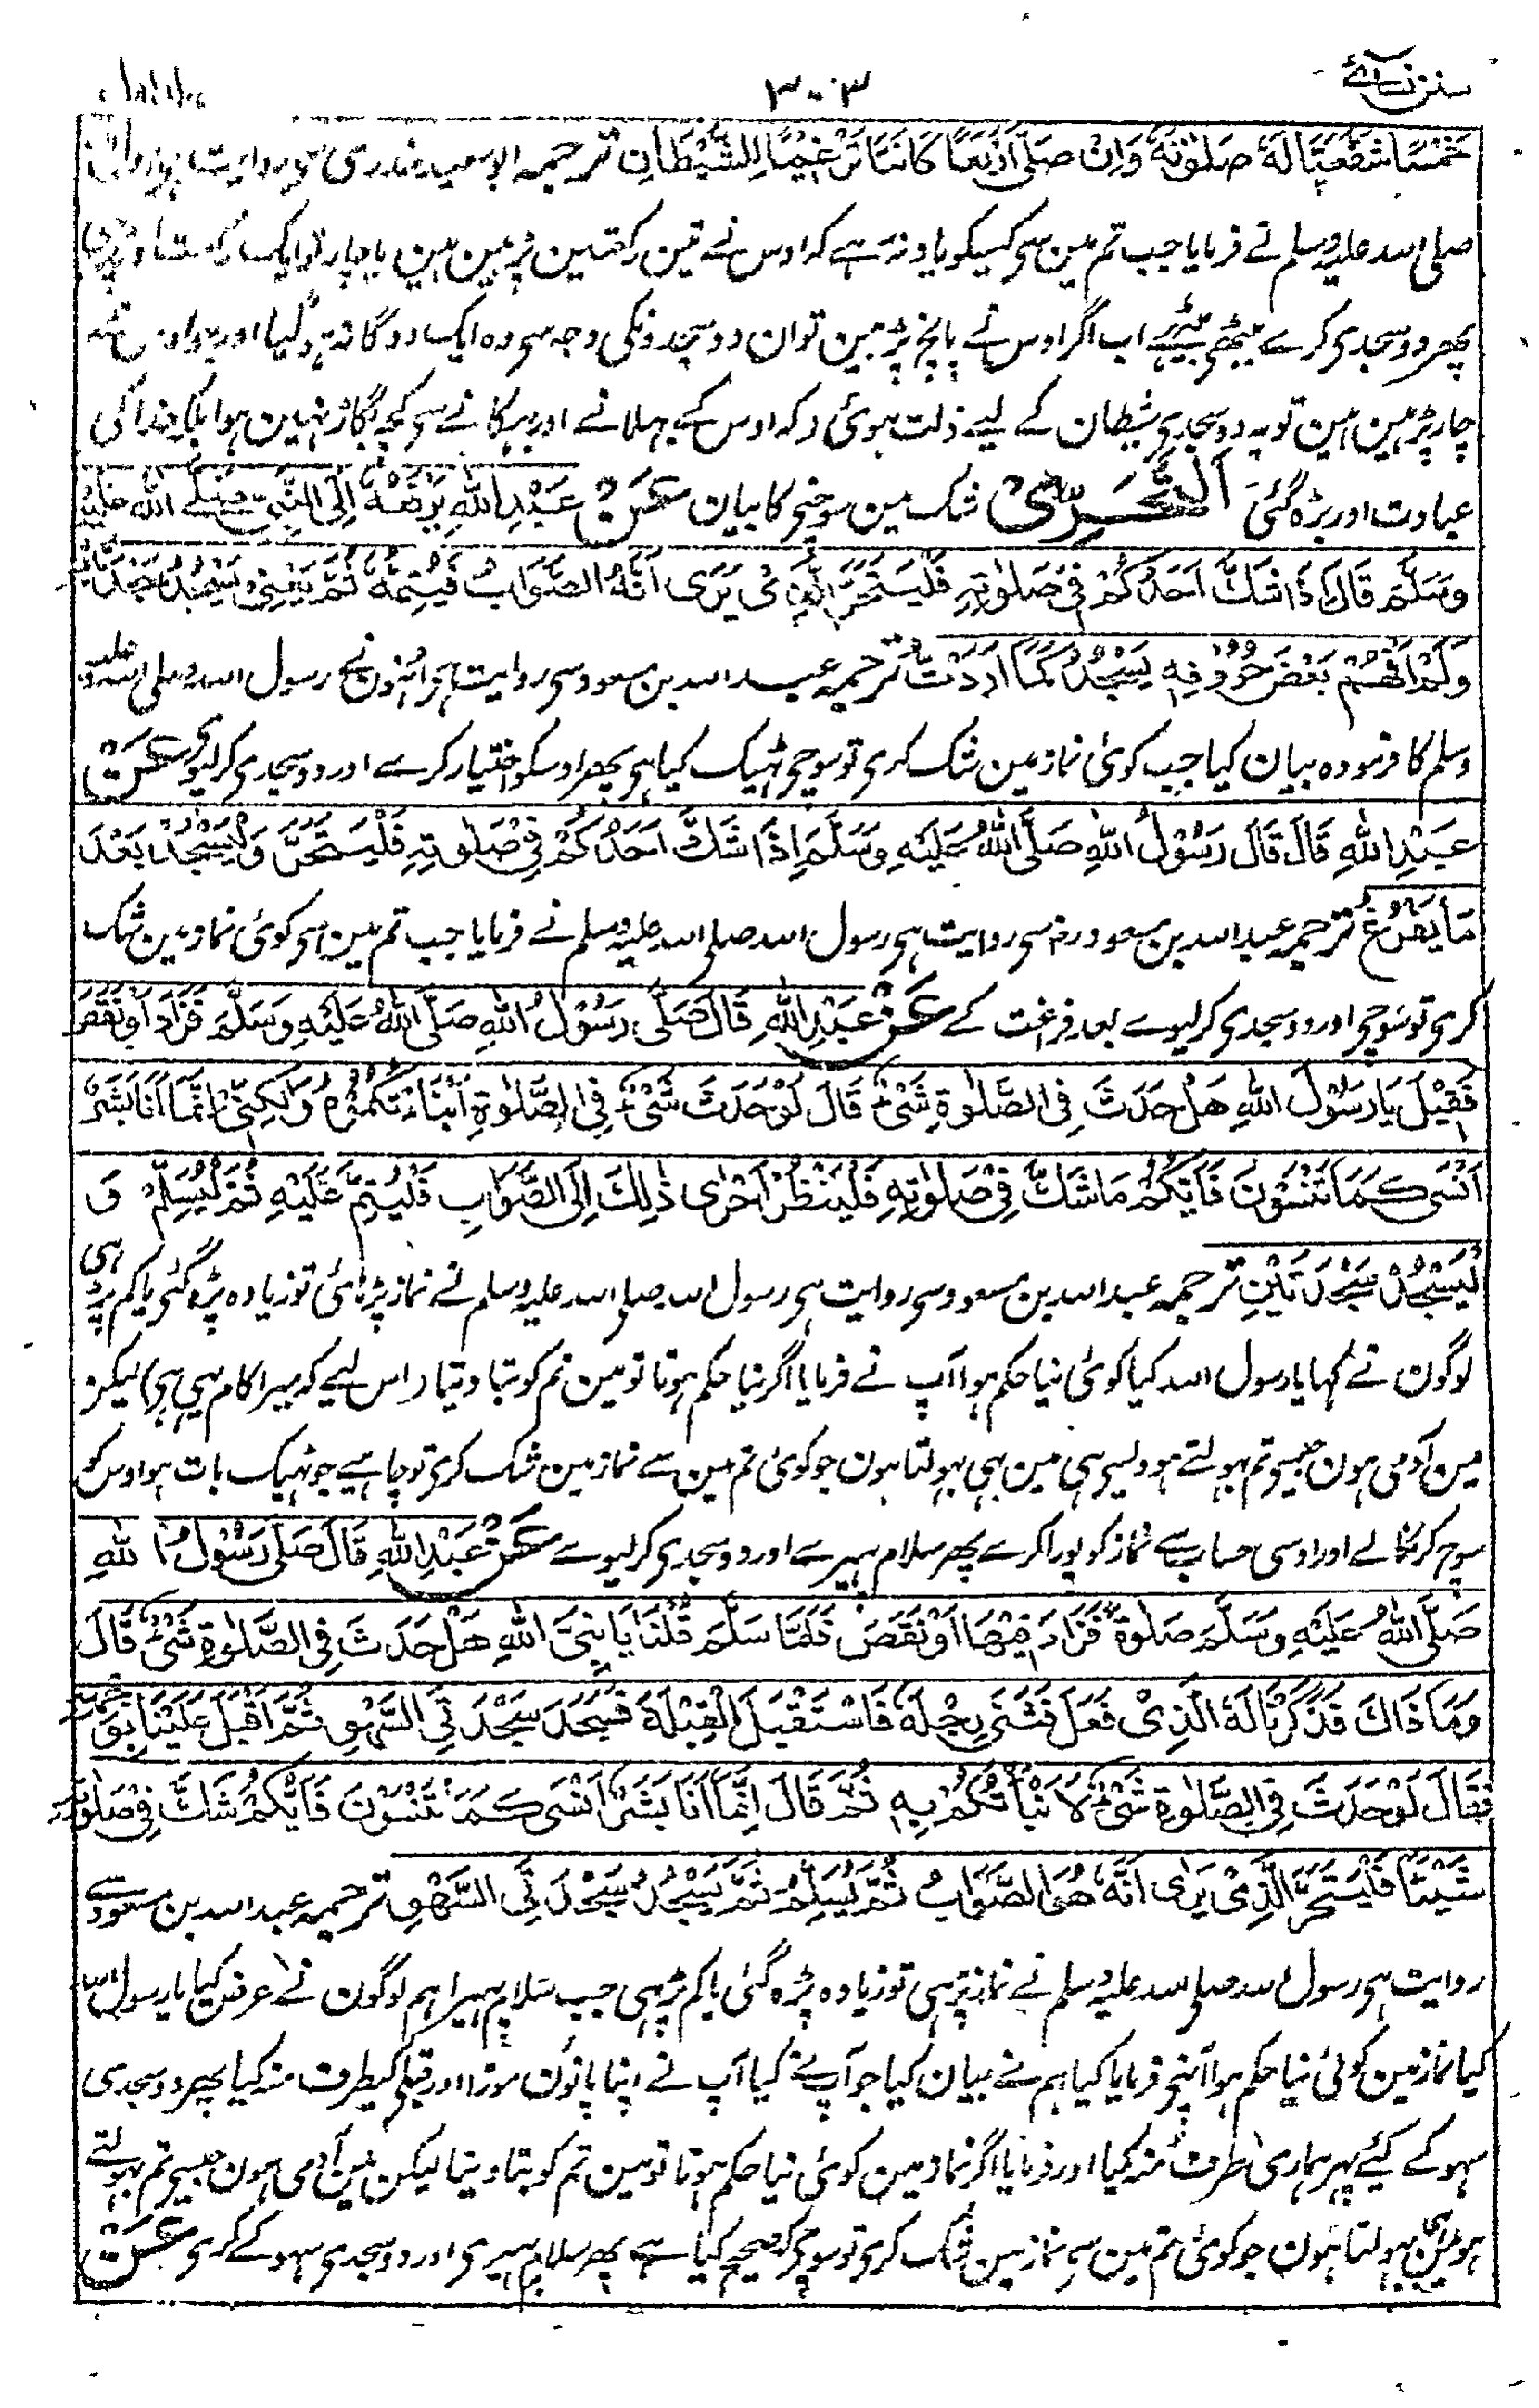 سنن نسائے
۳۰۳
خَمْسًا شَفَعَتَا لَهٗ صَلٰوتَهٗ وَاِنْ صَلّٰى اَرْبَعًا كَانَتَا تَرْغِيْمًا لِلشَّيْطَانِ ترجمہ ابو سعید خدری سی روایت ہی رسول اللہ
صلی اللہ علیہ وسلم نے فرمایا جب تم مین سی کسیکو یاد نہ رہے کہ اوس نے تین رکعتین پڑہین ہین یا چار تو ایک رکعت اور پڑہی
پھر دو سجدی کرے بیٹھی بیٹھے اب اگر اوس نے پانچ پڑہین تو ان دو سجدونکی وجہ سی وہ ایک دوگانہ ہو گیا اور جو اوس نے
چار پڑہین ہین تو یہ دو سجدی شیطان کے لیے ذلت ہوئی کہ اوس کے بہلانے اور بہکانے سی کچہ بگاڑ نہین ہوا بلکہ خدا کی
عبادت اور بڑہ گئی اَلتَّحَرِّيْ شک مین سوچنیکا بیان عَنْ عَبْدِ اللهِ يَرْفَعُهٗ اِلَى النَّبِيِّ صَلَّى اللهُ عَلَيْهِ
وَسَلَّمَ قَالَ اِذَا شَكَّ اَحَدُكُمْ فِيْ صَلٰوتِهٖ فَلْيَتَحَرَّ الَّذِيْ يَرٰى اَنَّهُ الصَّوَابُ فَيُتِمُّهٗ ثُمَّ يَعْنِيْ يَسْجُدُ سَجْدَتَيْنِ
وَلَمْ اَفْهَمْ بَعْضَ حُرُوْفِهٖ يَسْجُدُ كَمَا اَرَدْتُّ ترجمہ عبد اللہ بن مسعود سی روایت ہی انہون نی رسول اللہ صلی اللہ علیہ
وسلم کا فرمودہ بیان کیا جب کوئی نماز مین شک کری تو سوچی ٹھیک کیا ہی پھر اوسکو اختیار کرے اور دو سجدی کر لیوی عَنْ
عَبْدِ اللهِ قَالَ قَالَ رَسُوْلُ اللهِ صَلَّى اللهُ عَلَيْهِ وَسَلَّمَ اِذَا شَكَّ اَحَدُكُمْ فِيْ صَلٰوتِهٖ فَلْيَتَحَرَّ وَلْيَسْجُدْ بَعْدَ
مَا يَفْرُغُ ترجمہ عبد اللہ بن مسعود رض سی روایت ہی رسول اللہ صلی اللہ علیہ وسلم نے فرمایا جب تم مین سی کوئی نماز مین شک
کری تو سوچی اور دو سجدی کر لیوے بعد فرغت کے عَنْ عَبْدِ اللهِ قَالَ صَلّٰى رَسُوْلُ اللهِ صَلَّى اللهُ عَلَيْهِ وَسَلَّمَ فَزَادَ اَوْ نَقَصَ
فَقِيْلَ يَا رَسُوْلَ اللهِ هَلْ حَدَثَ فِي الصَّلٰوةِ شَيْءٌ قَالَ لَوْ حَدَثَ شَيْءٌ فِي الصَّلٰوةِ اَنْبَاْتُكُمُوْهُ وَلٰكِنِّيْ اِنَّمَا اَنَا بَشَرٌ
اَنْسٰى كَمَا تَنْسَوْنَ فَاَيُّكُمْ مَا شَكَّ فِيْ صَلٰوتِهٖ فَلْيَنْظُرْ اَحْرٰى ذٰلِكَ اِلَى الصَّوَابِ فَلْيُتِمَّ عَلَيْهِ ثُمَّ لْيُسَلِّمْ وَ
لْيَسْجُدْ سَجْدَتَيْنِ ترجمہ عبد اللہ بن مسعود سی روایت ہی رسول اللہ صلی اللہ علیہ وسلم نے نماز پڑہائی تو زیادہ پڑہ گئی یا کم پڑہی
لوگون نے کہا یا رسول اللہ کیا کوئی نیا حکم ہوا آپ نے فرمایا اگر نیا حکم ہوتا تو مین تم کو بتا دیتا (اس لیے کہ میرا کام یہی ہی) لیکن
مین آدمی ہون جیسی تم بہولتے ہو ویسی ہی مین بہی بہولتا ہون جو کوئی تم مین سے نماز مین شک کری تو چاہیے جو ٹہیک بات ہو اوس کو
سوچ کر نکالے اور اوسی حساب سے نماز کو پورا کرے پھر سلام پہیرے اور دو سجدی کر لیوے عَنْ عَبْدِ اللهِ قَالَ صَلّٰى رَسُوْلُ اللهِ
صَلَّى اللهُ عَلَيْهِ وَسَلَّمَ صَلٰوةً فَزَادَ فِيْهَا اَوْ نَقَصَ فَلَمَّا سَلَّمَ قُلْنَا يَا نَبِيَّ اللهِ هَلْ حَدَثَ فِي الصَّلٰوةِ شَيْءٌ قَالَ
وَمَا ذَاكَ فَذَكَرْنَا لَهُ الَّذِيْ فَعَلَ فَثَنٰى رِجْلَهٗ فَاسْتَقْبَلَ الْقِبْلَةَ فَسَجَدَ سَجْدَتَيِ السَّهْوِ ثُمَّ اَقْبَلَ عَلَيْنَا بِوَجْهِهٖ
فَقَالَ لَوْ حَدَثَ فِي الصَّلٰوةِ شَيْءٌ لَاَنْبَاْتُكُمْ بِهٖ ثُمَّ قَالَ اِنَّمَا اَنَا بَشَرٌ اَنْسٰى كَمَا تَنْسَوْنَ فَاَيُّكُمْ شَكَّ فِيْ صَلٰوتِهٖ
شَيْئًا فَلْيَتَحَرَّ الَّذِيْ يَرٰى اَنَّهٗ هُوَ الصَّوَابُ ثُمَّ يُسَلِّمْ ثُمَّ يَسْجُدُ سَجْدَتَيِ السَّهْوِ ترجمہ عبد اللہ بن مسعود سے
روایت ہی رسول اللہ صلی اللہ علیہ وسلم نے نماز پڑہی تو زیادہ پڑہ گئی یا کم پڑہی جب سلام پہیرا ہم لوگون نے عرض کیا یا رسول اللہ
کیا نماز مین کوئی نیا حکم ہوا آپنی فرمایا کیا ہم نے بیان کیا جو آپنے کیا آپ نے اپنا پانوُن موڑا اور قبلہ کیطرف منہ کیا پھر دو سجدی
سہو کے کیے پہر ہماری طرف منہ کیا اور فرمایا اگر نماز مین کوئی نیا حکم ہوتا تو مین تم کو بتا دیتا لیکن مین آدمی ہون جیسی تم بہولتے
ہو مین بہی بہولتا ہون جو کوئی تم مین سی نماز مین شک کری تو سوچی کہ صحیح کیا ہے پھر سلام پہیری اور دو سجدی سہو کے کری عَنْ